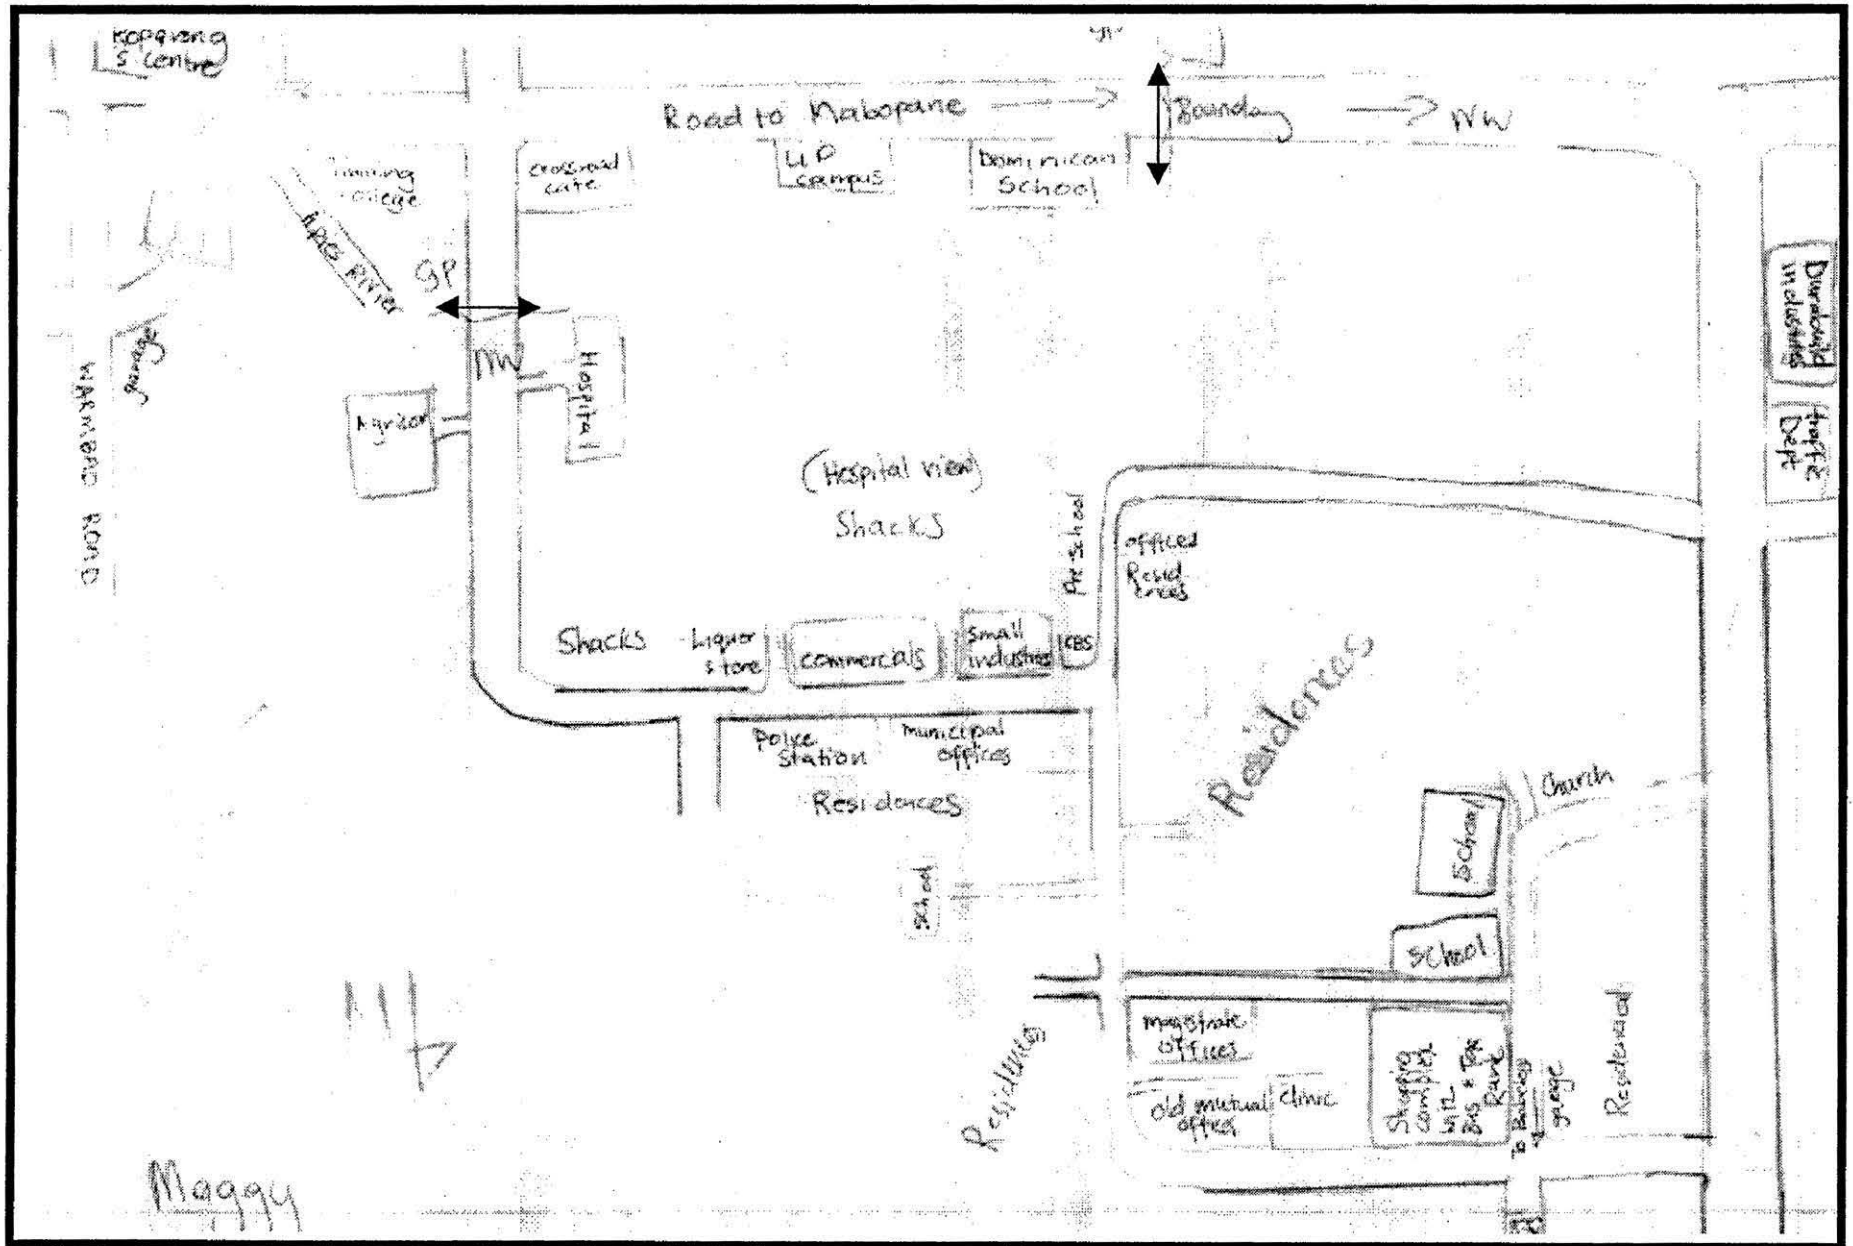 Kopanong
S Centre
Road to Mabopane
Boundary
NW
Training
College
crossroad
cafe
UP
campus
Dominican
School
Apies River
GP
NW
Hospital
garage
WARMBAD ROAD
Durobuild
industries
traffic
Dept
(Hospital view)
Shacks
Pre-School
offices
Resid
ences
Shacks
Liquor
store
commercials
Small
industries
CBS
Police
Station
municipal
offices
Residences
Residences
Church
School
School
School
Residences
magistrate
offices
old mutual
offices
clinic
Shopping
complex
with
Bus & Taxi
Rank
to
garage
Residential
Maggy